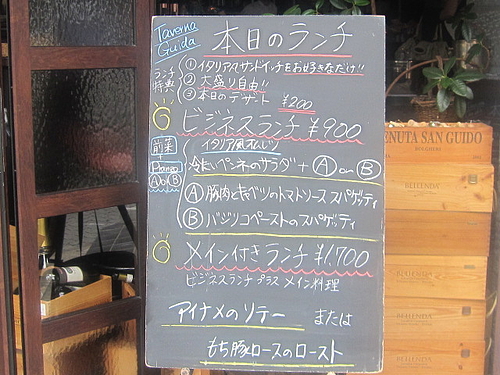 Taverna
Guida
本日のランチ
ランチ
特典
① イタリアサンドイッチをお好きなだけ!!
② 大盛り自由!!
③ 本日のデザート ¥200
ビジネスランチ ¥900
前菜
イタリア風オムレツ
冷たいペンネのサラダ + Ⓐ or Ⓑ
Pranzo
A or B
Ⓐ 豚肉とキャベツのトマトソース スパゲッティ
Ⓑ バジリコペーストのスパゲッティ
メイン付きランチ ¥1,700
ビジネスランチ プラス メイン料理
アイナメのソテー または
もち豚ロースのロースト
TENUTA SAN GUIDO
BELLENDA
BELLENDA